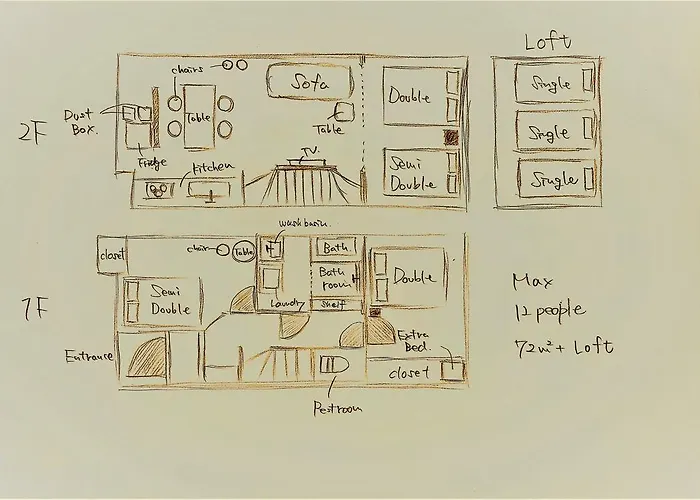 Loft
chairs
Sofa
Double
Single
Dust
Box.
Table
Table
2F
Single
Fridge
Kitchen
TV.
Semi
Double
Single
wash basin.
closet
chair
Table
Bath
Bath
room
Double
Semi
Double
Laundry
shelf
1F
Max
12 people
72m²+ Loft
Entrance
Extra
Bed.
closet
Restroom